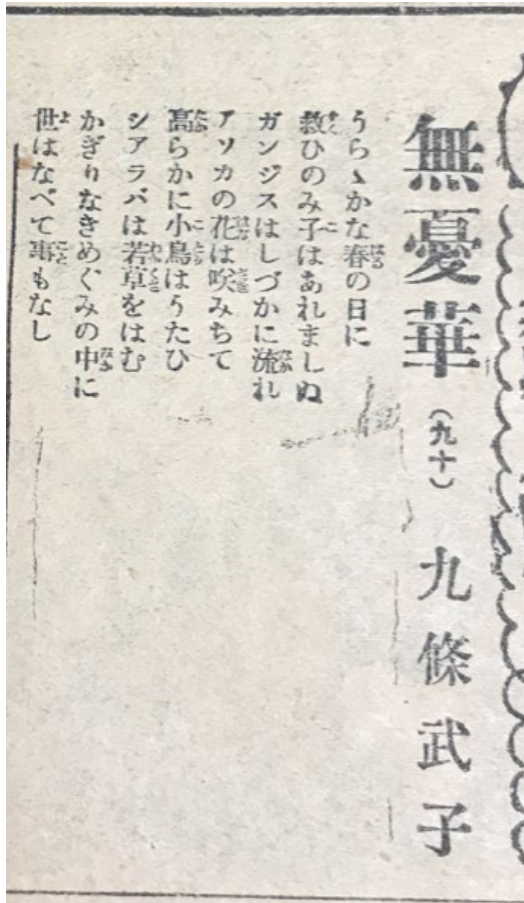 無憂華 (九十) 九條武子
うらゝかな春の日に
救ひのみ子はあれましぬ
ガンジスはしづかに流れ
アソカの花は咲みちて
高らかに小鳥はうたひ
シアラバは若草をはむ
かぎりなきめぐみの中に
世はなべて事もなし